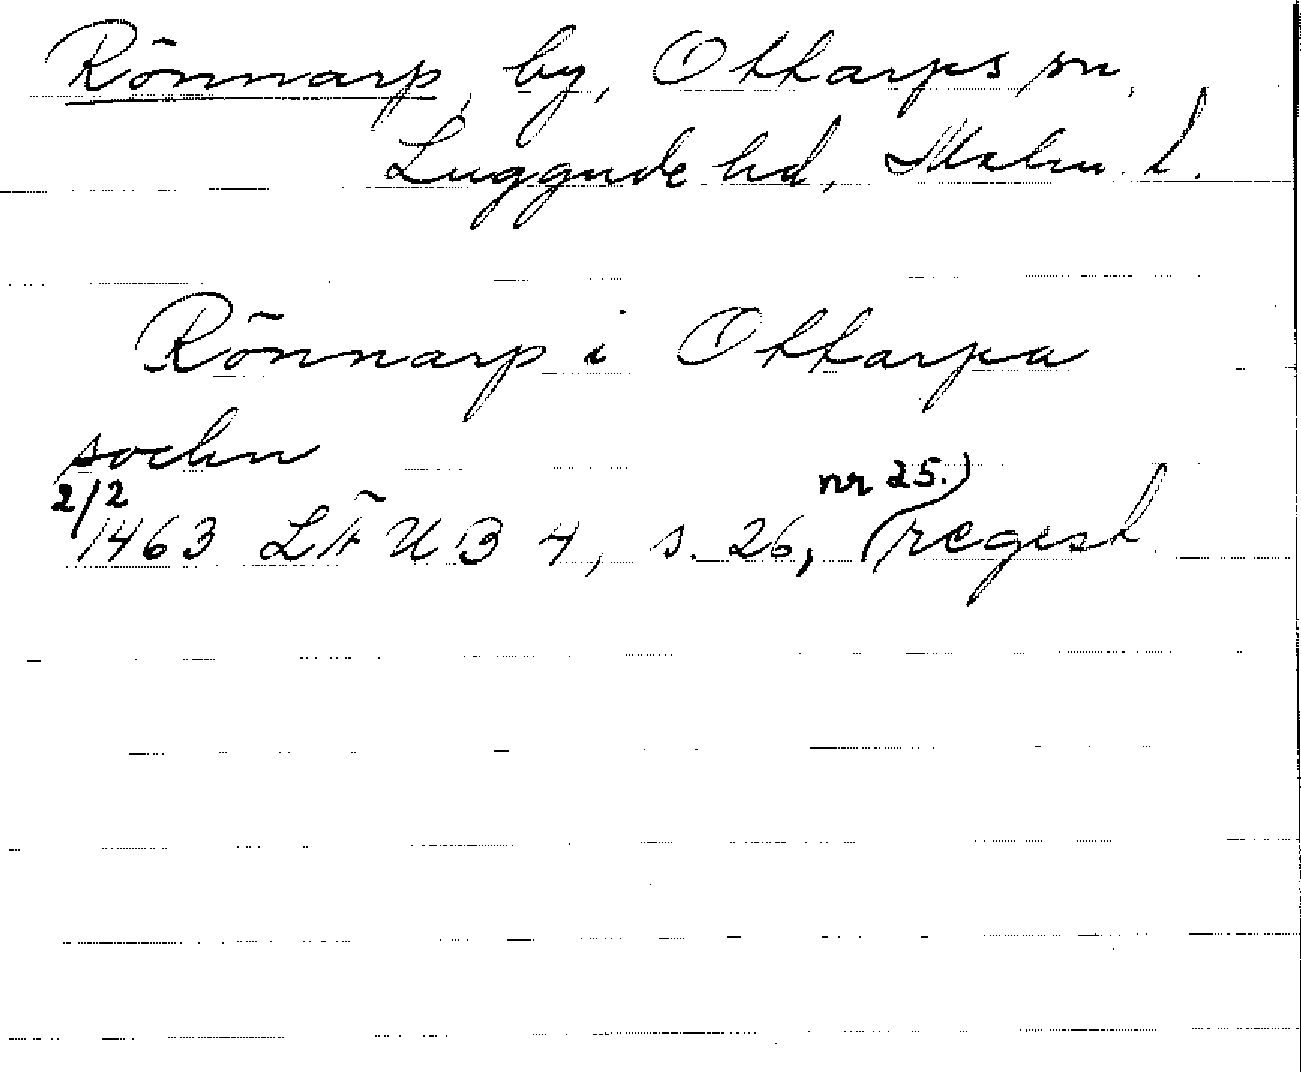 Rönnarp, by, Ottarps sn,
Luggude hd, Malm. l.
Rönnarp i Ottarpa
sochn
2/2 1463 LÄUB 4, s. 26, nr 25.) (regest